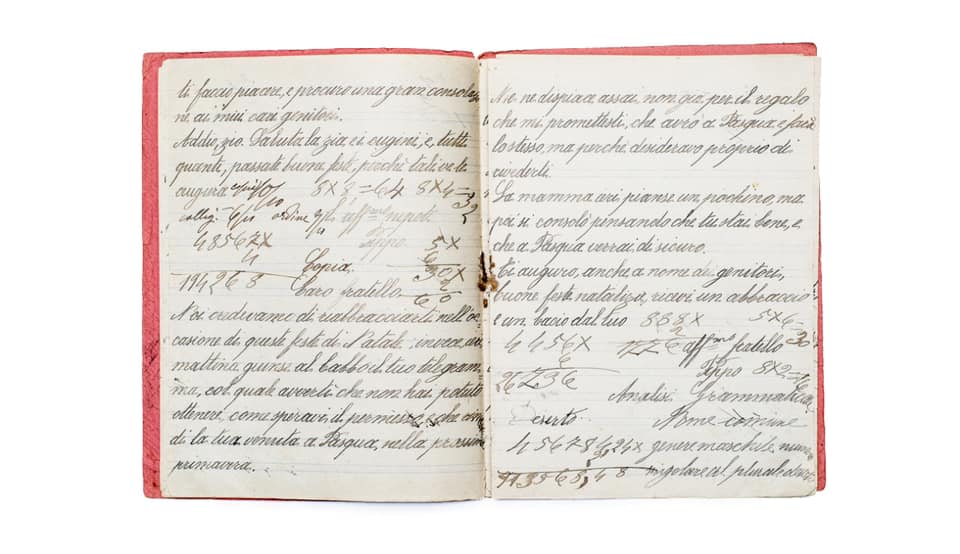 ti faccio piacere, e procuro una gran consolazio
ne ai miei cari genitori.
Addio, zio. Saluta la zia ei cugini, e, tutti
quanti, passate buone feste, perchè tali ve le
augura 8X8=64 8X4=
32
nipoti
48567X Pippo 5X
4 6
194268 Copia. 30X
Caro fratello
60
Noi credevamo di riabbracciarti nell'oc-
casione di queste feste di Natale: invece ieri
mattina giunse al babbo il tuo telegram-
ma, col quale avverti che non hai potuto
ottenere, come speravi, il permesso, e che
di la tua venuta a Pasqua, nella prossima
primavera.
Me ne dispiace assai, non già per il regalo
che mi promettesti, che avrò a Pasqua e farà
lo stesso, ma perchè desideravo proprio di
rivederti.
La mamma ieri pianse un pochino, ma
poi si consolò pensando che tu stai bene, e
che a Pasqua verrai di sicuro.
Ti auguro, anche a nome dei genitori,
buone feste natalizie, ricevi un abbraccio
e un bacio dal tuo 888X 5X6=
30
4456X 2 aff.mo fratello
6 Pippo 8X2=16
26736
Analisi Grammaticale
Nome comune
genere maschile, nume
singolare al plurale